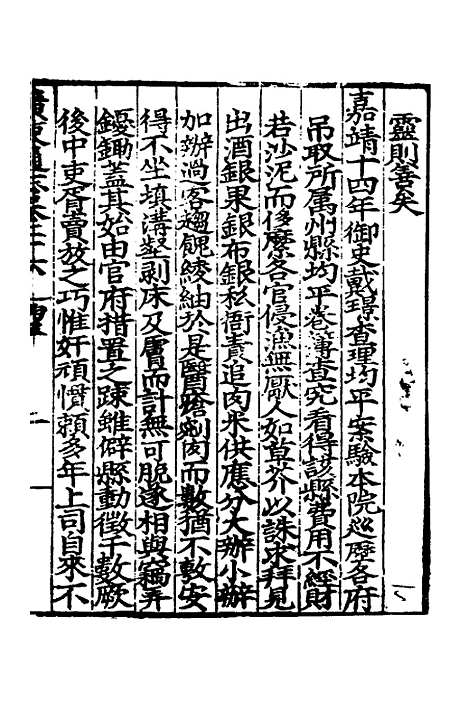 靈則善矣
嘉靖十四年御史戴璟查理均平案驗本院巡歷各府
吊取所属州縣均平卷簿查究看得該縣費用不經財
若沙泥而侈靡各官侵漁無厭人如草芥以誅求拜見
出酒銀果銀布銀私衙責追肉米供應分大辦小辦
加辦過客趨餽綾紬於是醫瘡剜肉而數猶不敷安
得不坐填溝壑剥床及膚而計無可脫遂相與竊弄
鋤蓋其始由官府措置之踈雖僻縣動徵千數厥
後中吏胥賣放之巧惟奸頑慣賴多年上司自來不